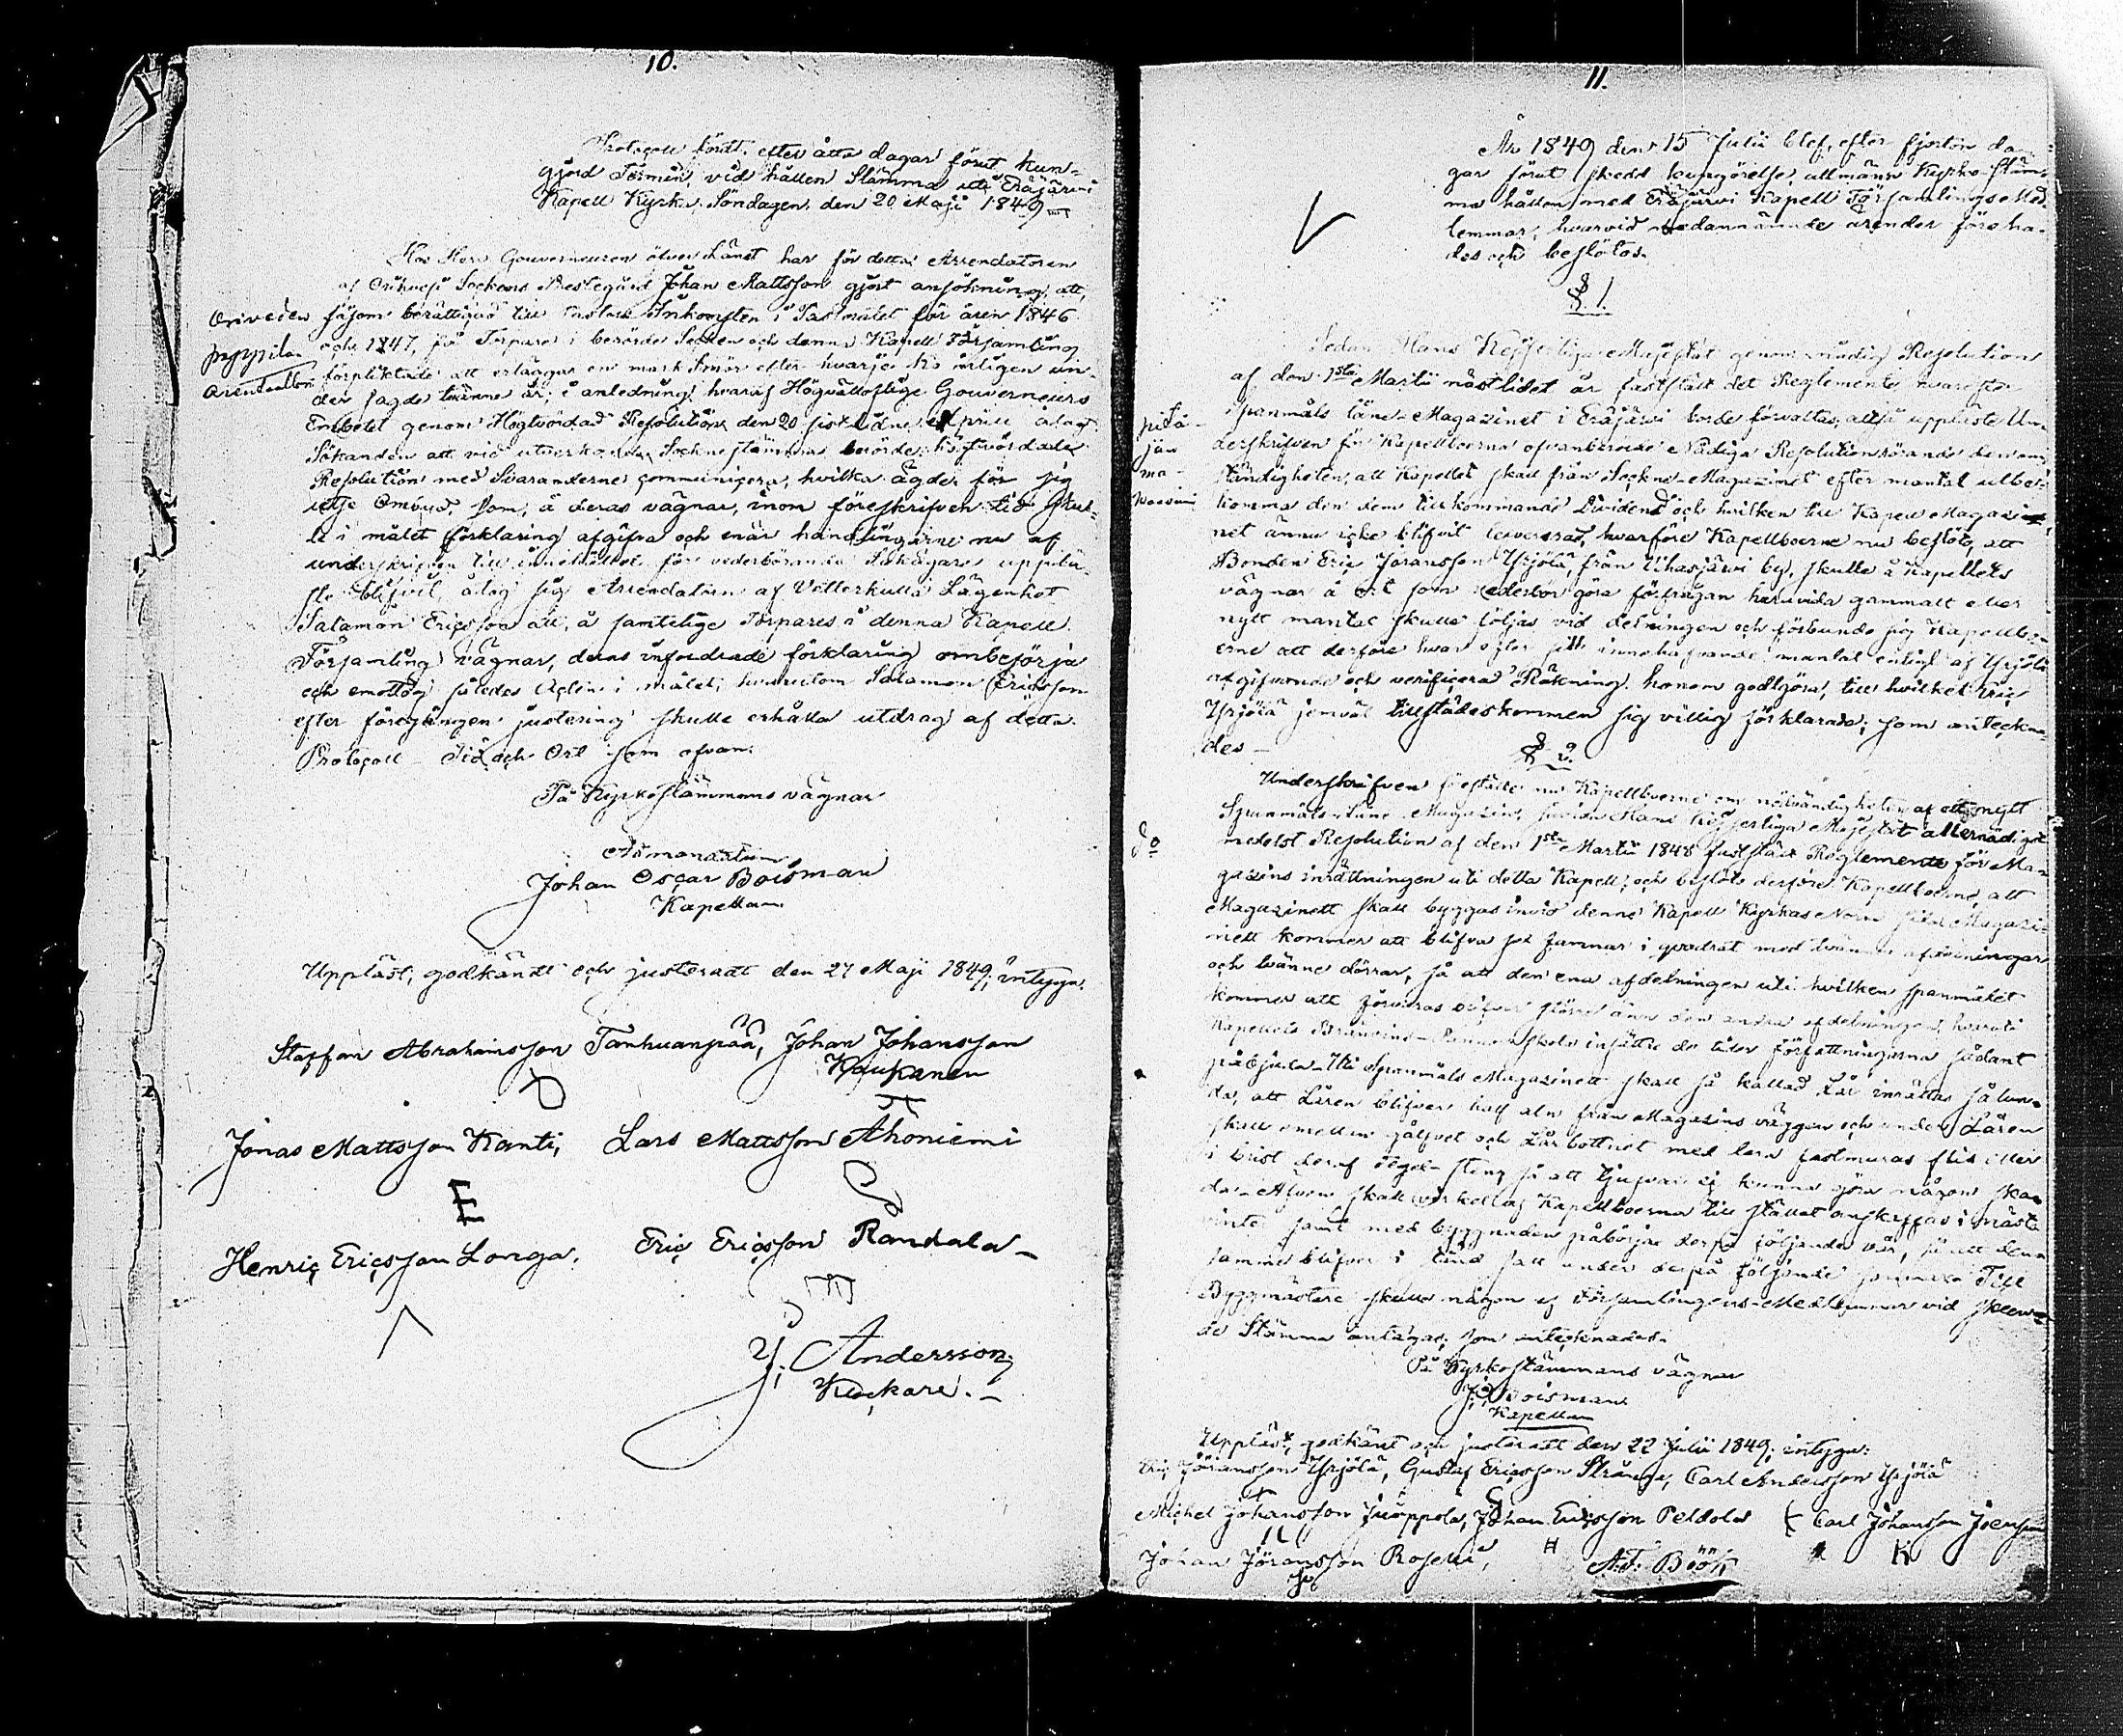 10.
Protocoll fördt efter åtta dagar förut kun-
gjord Termin, vid hållen Stämma uti Eräjärvi
Kapell Kyrka, Söndagen den 20 Maji 1849
Hos Herr Gouverneuren öfver Länet har för detta Arrendatoren
af Orihvesi Sockens Prestegård Johan Mattsson gjort ansökning, att,
Oriveden såsom berättigad till Inkomsten i Pastoratet för åren 1846
pappilan och 1847, få Torpare i berörde Socken och denna Kapell Församling
arentaattori förpliktade att erlägga en mark Smör efter hvarje Ko årligen un-
der sagde tvänne år; i anledning hvaraf Högvälloflige Gouverneurs
Embetet genom Högtvördad Resolution den 20 sistledne April ålagt
Sökanden att vid utverkande Sockne stämma berörde högtvördade
Resolution med Svaranderne communicera, hvilka ägde för sig
utse Ombud, som, å deras vägnar, inom föreskrifven tid skul-
le i målet förklaring afgifva och enär handlingarne nu af
underskrifven till innehållet för vederbörande Sakägare upplä-
ste blifvit, åtog sig Arrendatorn af Vetterkulla Lägenhet
Salamon Ericsson att, å samtelige Torpares i denna Kapell
Församling vägnar, deras infordrade förklaring ombesörja
och emottog således Acten i målet; hvarutom Salamon Ericsson
efter föregången justering skulle erhålla utdrag af detta
Protocoll – Tid och Ort som ofvan.
På Kyrkostämmans vägnar
Johan Oscar Boisman
Kapellan
Uppläst, godkändt och justeradt den 27 Maji 1849; intyga:
Staffan Abrahamsson Tanhuanpää, Johan Johansson
Kaukanen
Jonas Mattsson Kanti, Lars Mattsson Ahoniemi
E
Henric Ericsson Longa. Eric Ericsson Randala –
Y. Andersson
Klockare. –
11.
År 1849 den 15 Julii blef, efter fjorton da-
gar förut skedd kungörelse, allmänn Kyrko Stäm-
ma hållen med Eräjärvi Kapell Församlings Med-
lemmar, hvarvid nedannämnde ärender föreha-
des och beslötos.
§ 1.
Sedan Hans Kejserliga Majestät genom nådig Resolution
af den 1sta Martii nästlidet år fastställt det Reglemente hvarefter
Spanmåls låne-Magazinet i Eräjärvi borde förvaltas, altså uppläste Un-
pitä-
jän
ma-
kasiini
derskrifven för Kapellboerna ofvanberörde Nådiga Resolution rörande den om-
ständigheten, att Kapellet skall från Sockne-Magazinet efter mantal utbe-
komma den dem tillkommande Dividend och hvilken till Kapell Magazi-
net ännu icke blifvit levererad, hvarföre Kapellboerne nu beslöto, att
Bonden Eric Jöransson Yrjölä, från Uihasjärvi by, skulle å Kapellets
vägnar å ort som vederbör göra förfrågan huruvida gammalt eller
nytt mantal skulle följas vid delningen och förbundo sig Kapellbo-
erne att derföre hvar efter sitt innehafvande mantal enligt af Yrjölä
afgifvande och verificerad Räkning honom godtgöra, till hvilket Eric
Yrjölä jemväl tillstädeskommen sig villig förklarade; som anteckna-
des –
§ 2.
Underskrifven föreställte nu Kapellboerne om nödvändigheten af ett nytt
Spanmåls-Låne-Magazin, sedan Hans Kejserliga Majestät allernådigst
do medelst Resolution af den 1sta Martii 1848 fastställt Reglemente för Ma-
gazins inrättningen uti detta Kapell; och beslöto derföre Kapellboerne, att
Magazinett skall byggas invid denne Kapell Kyrkas Norra sida Magazi-
nett kommer att blifva sex famnar i qvadrat med tvänne afdelningar
och tvänne dörrar, så att den ena afdelningen uti hvilken spanmålet
kommer att förvaras blifver större änn den andra afdelningen, hvaruti
Kapellets Brännvins-Pannor skola insättas de tider författningarna sådant
påbjuda. Uti Spanmåls Magazinett skall så kallad Lår inrättas sålun-
da, att Låren blifver half aln från Magazins väggen och under Låren
skall emellan golfvet och Lår bottnet med lera fastmuras flis eller
i brist deraf Tegel-sten, så att tjufvar ej kunna göra någon ska-
da – Äfven skall virket af Kapellboerna till stället anskaffas i nästa
vinter samt med byggnaden påbörjas derpå följande vår, så att den-
samma blifver i stånd satt under derpå följande sommar Till
Byggmästare skulle någon af Församlingens-Medlemmar vid skeen-
de Stämma antagas; som antecknades.
På Kyrkostämmans vägnar
J. O. Boisman
Kapellan
Uppläst, godkänt och justeradt den 22 Julii 1849; intyga:
Eric Jöransson Yrjölä, Gustaf Ericsson Strång, Carl Andersson Yrjölä
Michel Johansson Juoppola, Johan Ericsson Peldola Carl Johansson
Johan Jöransson Roselli, A.F. Böök